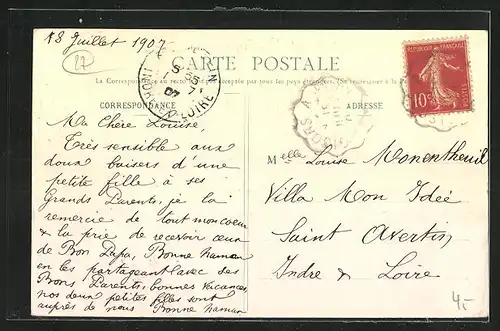 13 Juillet 1907
17
CARTE POSTALE
La Correspondance au recto
CORRESPONDANCE
ADRESSE
REPUBLIQUE FRANÇAISE
10c
POSTES
LOIRE
Ma Chère Louise,
Très sensible aux
doux baisers d'une
petite fille à ses
Grands Parents, je la
remercie de tout mon coeur
& la prie de recevoir ceux
de Bon Papa, Bonne Maman
en les partageant avec ses
Bons Parents, bonnes vacances
nos deux petites filles sont
auprès de nous Bonne Maman
Melle Louise Monentheuil
Villa Mon Idée
Saint Avertin
Indre & Loire
4,-